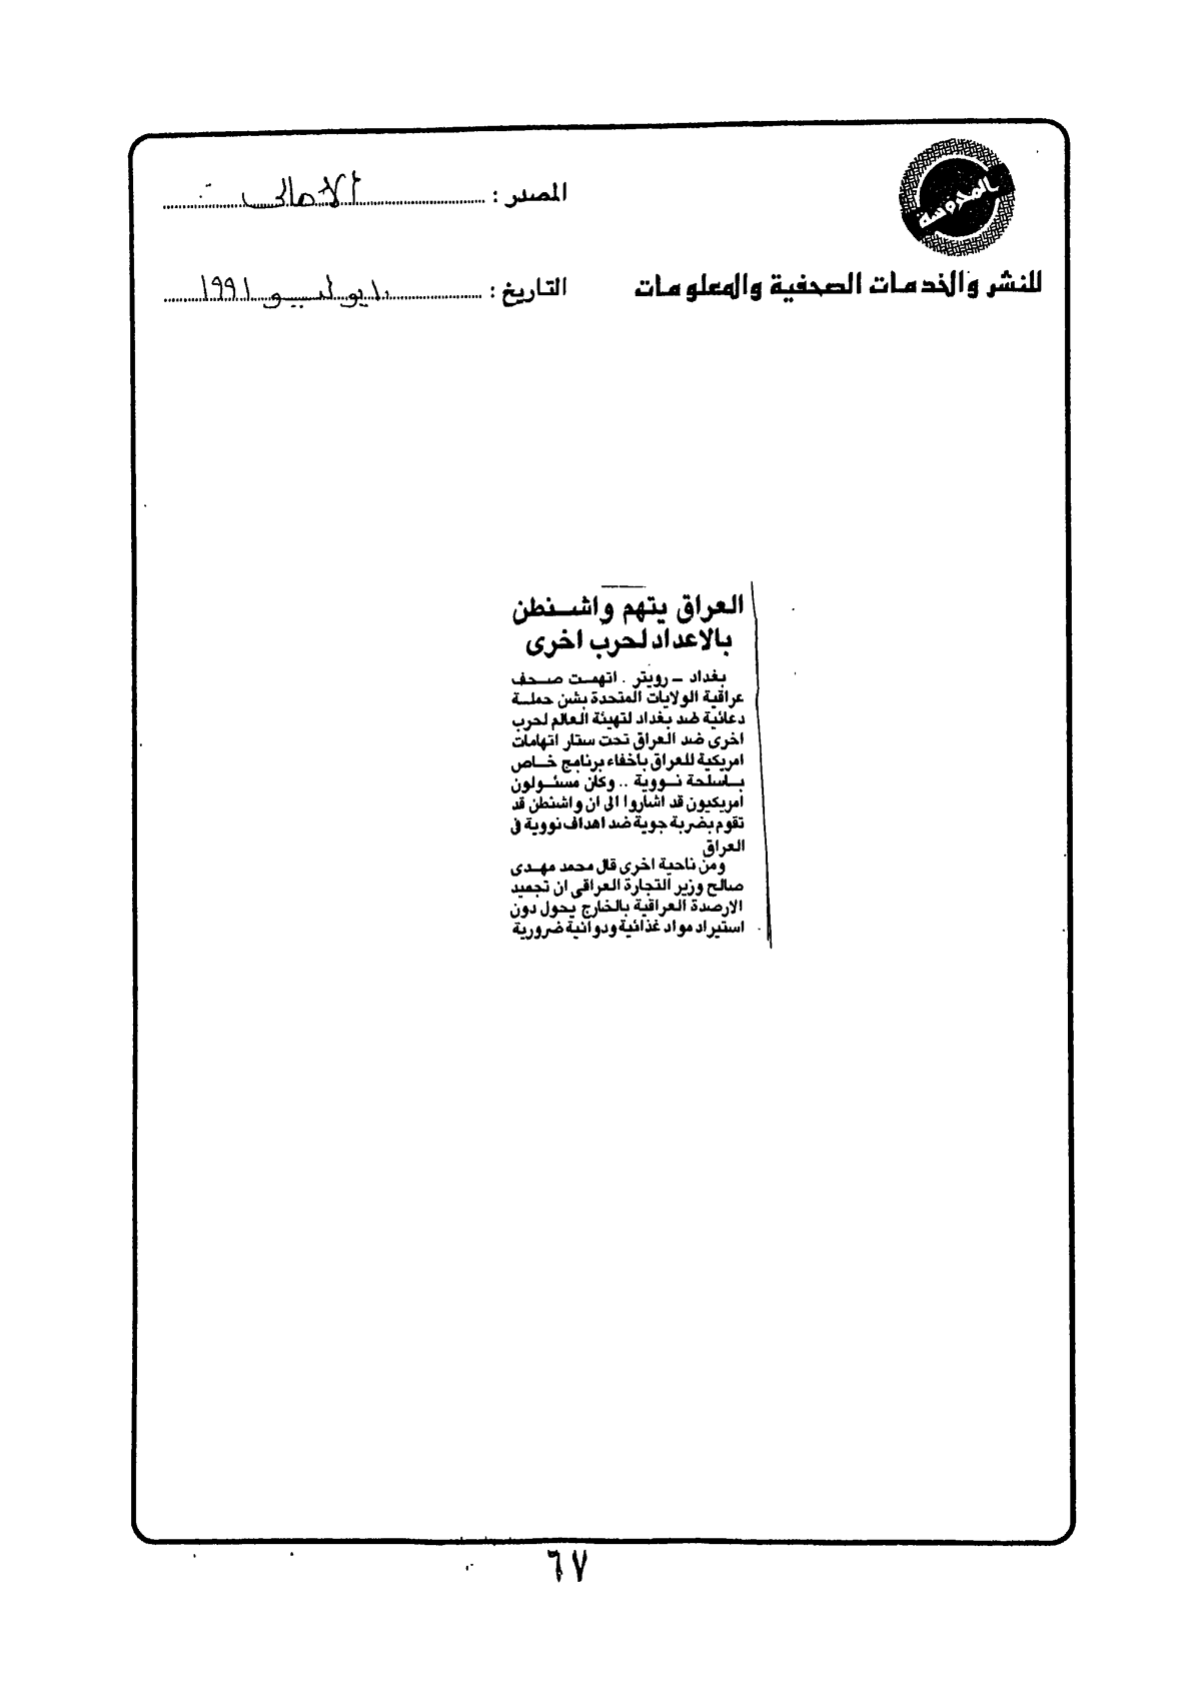 المحروسة
للنشر والخدمات الصحفية والمعلومات
المصدر : الأهالى
التاريخ : ١٠ يوليو ١٩٩١
العراق يتهم واشنطن
بالاعداد لحرب اخرى
بغداد - رويتر . اتهمت صحف
عراقية الولايات المتحدة بشن حملة
دعائية ضد بغداد لتهيئة العالم لحرب
اخرى ضد العراق تحت ستار اتهامات
امريكية للعراق باخفاء برنامج خاص
باسلحة نووية .. وكان مسئولون
امريكيون قد اشاروا الى ان واشنطن قد
تقوم بضربة جوية ضد اهداف نووية فى
العراق
ومن ناحية اخرى قال محمد مهدى
صالح وزير التجارة العراقى ان تجميد
الارصدة العراقية بالخارج يحول دون
استيراد مواد غذائية ودوائية ضرورية
٦٧